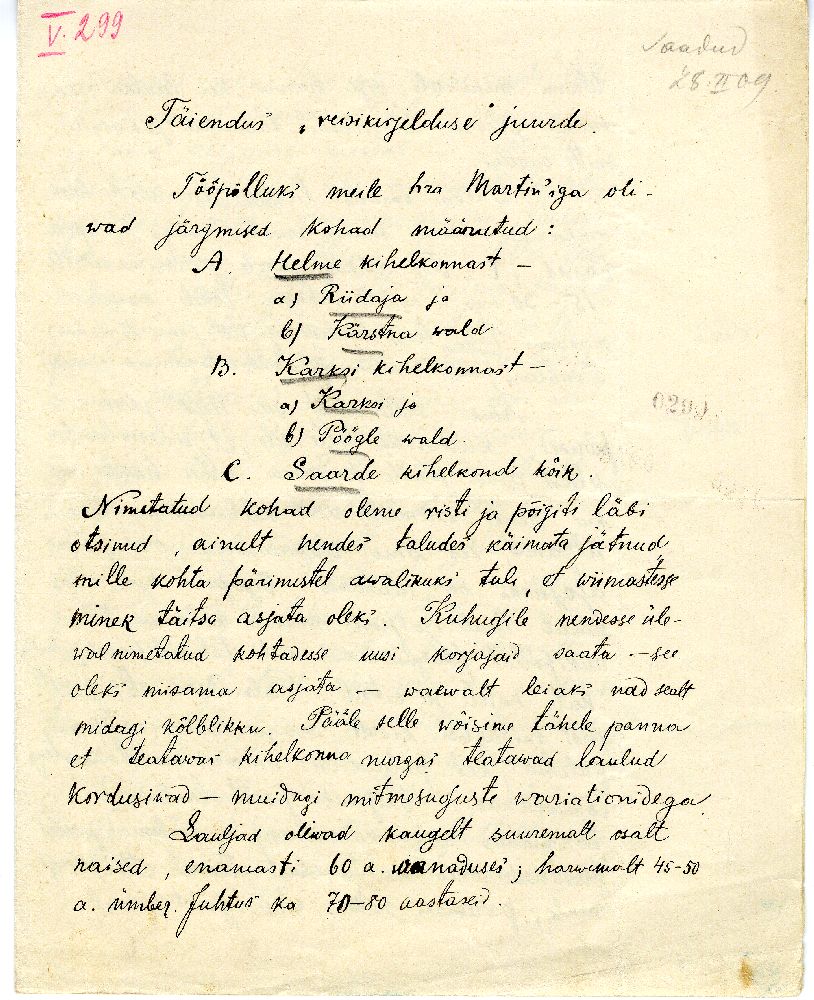 V. 299
Saadud
28. II 09.
Täiendus „reisikirjelduse" juurde.
Tööpõlluks meile hra Martin'iga oli-
wad järgmised kohad määratud:
A. Helme kihelkonnast —
a) Riidaja ja
b) Kärstna wald
B. Karksi kihelkonnast —
a) Karksi ja
b) Pöögle wald.
C. Saarde kihelkond kõik.
Nimetatud kohad oleme risti ja põigiti läbi
otsinud, ainult nendes taludes käimata jätnud,
mille kohta pärimistel awalikuks tuli, et wiimastesse
minek täitsa asjata oleks. Kuhugile nendesse üle-
wal nimetatud kohtadesse uusi korjajaid saata — see
oleks niisama asjata — waewalt leiaks nad sealt
midagi kõlblikku. Pääle selle wõisime tähele panna
et teatawas kihelkonna nurgas teatawad laulud
kordusiwad — muidugi mitmesuguste wariationidega.
Lauljad oliwad kaugelt suuremalt osalt
naised, enamasti 60 a. wanaduses; harwemalt 45-50
a. ümber. Juhtus ka 70-80 aastaseid.